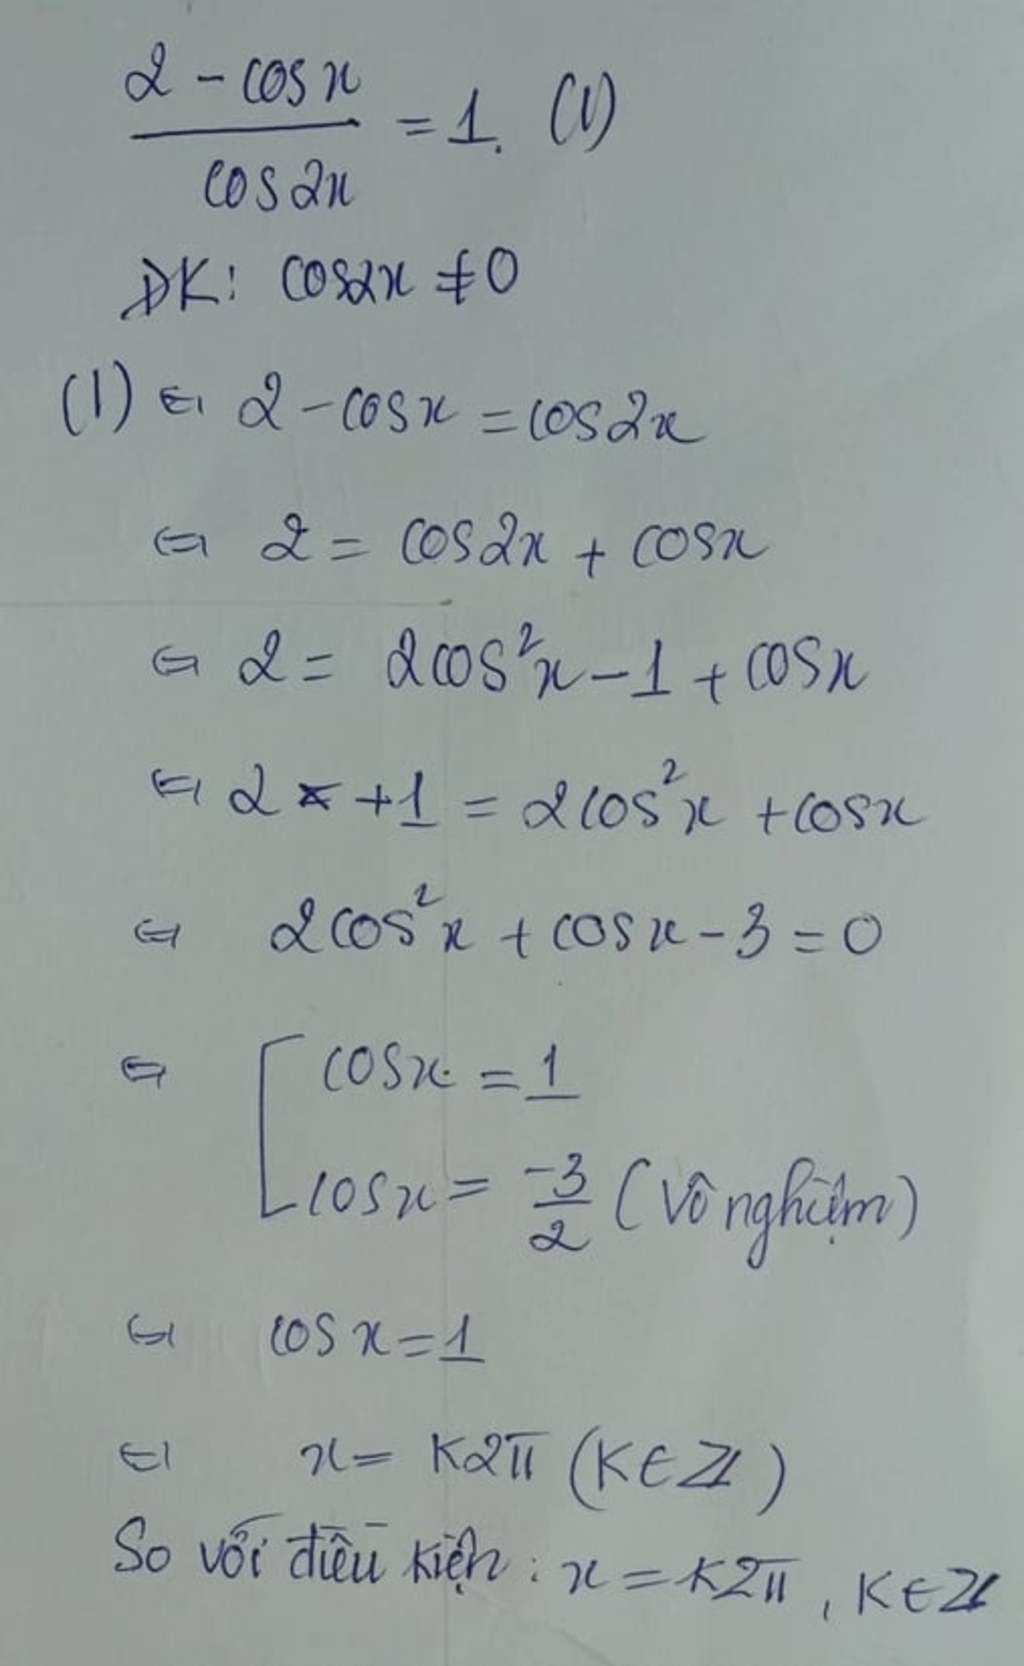 2 - cos x
cos2x
= 1. (1)
ĐK: cos2x ≠ 0
(1) ⇔ 2 - cosx = cos2x
⇔ 2 = cos2x + cosx
⇔ 2 = 2cos²x - 1 + cosx
⇔ 2 + 1 = 2cos²x + cosx
⇔ 2cos²x + cosx - 3 = 0
⇔ [ cosx = 1
cosx = -3/2 (Vô nghiệm)
⇔ cos x = 1
⇔ x = K2π (K∈Z)
So với điều kiện: x = K2π, K∈Z